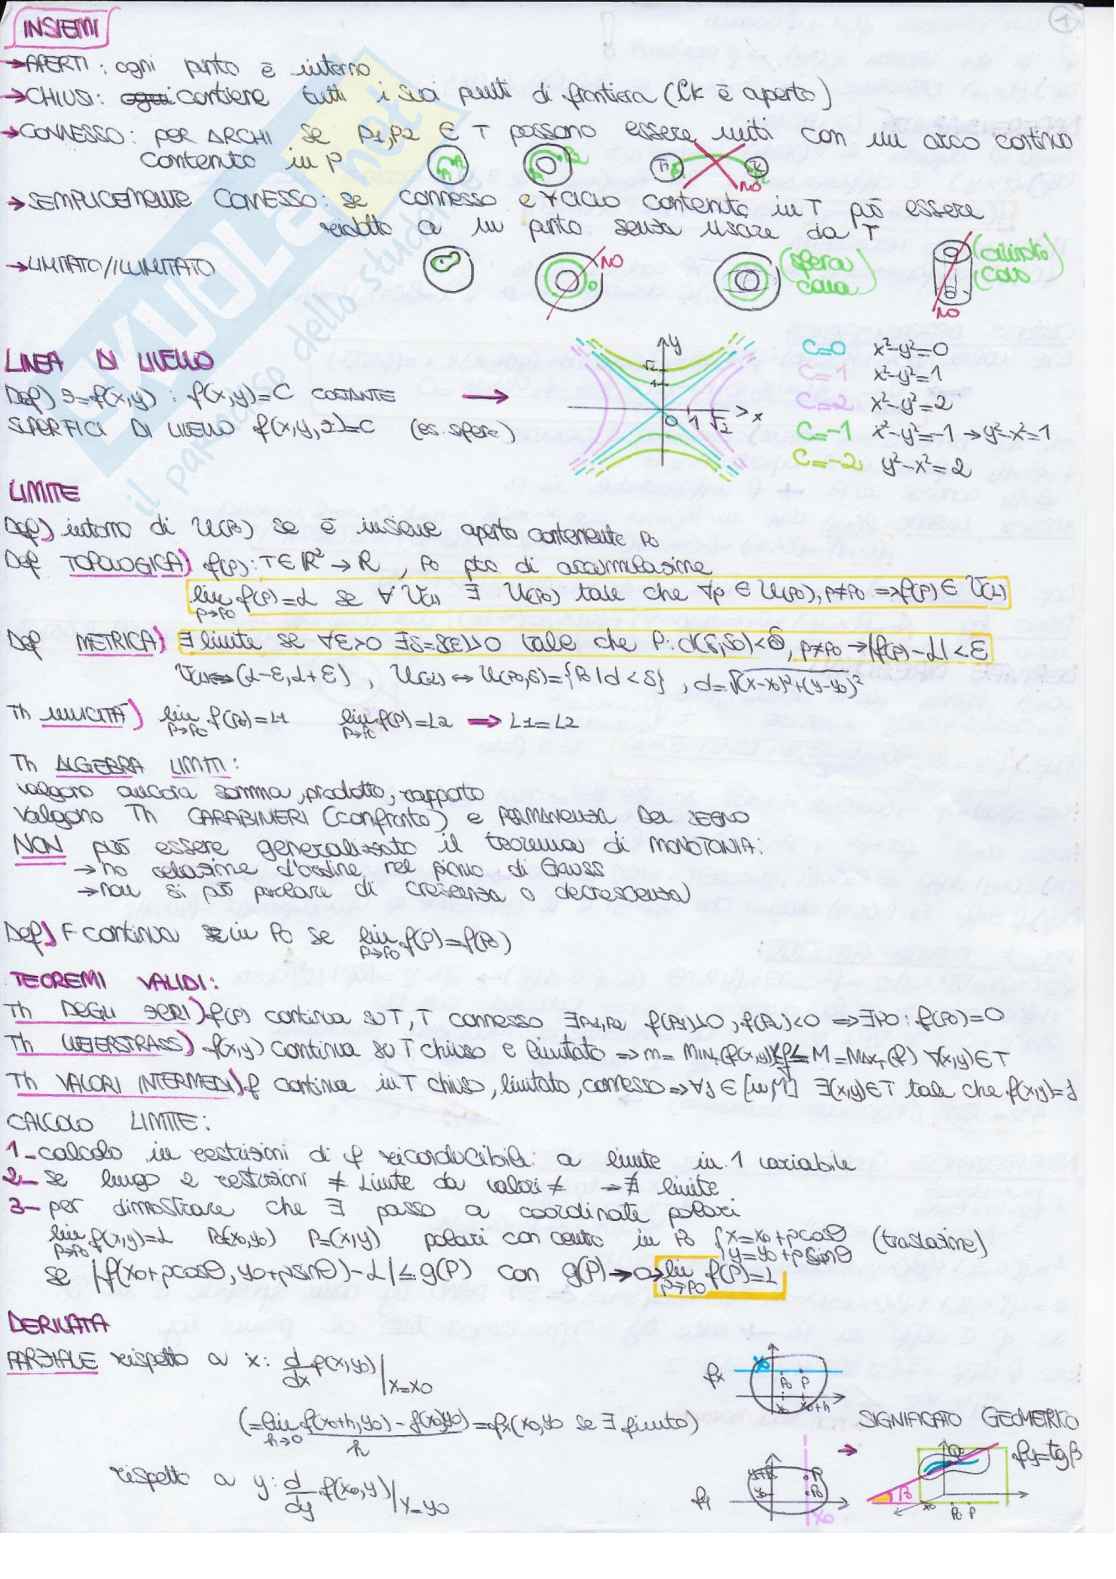 1
INSIEMI
→APERTI: ogni punto è interno
→CHIUSI: contiene tutti i suoi punti di frontiera (Ck è aperto)
→CONNESSO: PER ARCHI se P1,P2 ∈ T possono essere uniti con un arco continuo
contenuto in P
NO
→SEMPLICEMENTE CONNESSO: se connesso e ∀ ciclo contenuto in T può essere
ridotto a un punto senza uscire da T
→LIMITATO/ILLIMITATO
NO
(sfera cava)
(cilindro cavo)
NO
LINEA DI LIVELLO
Def) z=f(x,y) : f(x,y)=C COSTANTE →
SUPERFICI DI LIVELLO f(x,y,z)=C (es. sfere)
y
√2
1
0 1 √2 x
C=0 x²-y²=0
C=1 x²-y²=1
C=2 x²-y²=2
C=-1 x²-y²=-1 →y²-x²=1
C=-2 y²-x²=2
LIMITE
Def) intorno di U(P0) se è insieme aperto contenente P0
Def TOPOLOGICA) f(P): T∈R²→R, P0 pto di accumulazione
lim P→P0 f(P)=L se ∀ V(L) ∃ U(P0) tale che ∀p ∈ U(P0), P≠P0 ⇒f(P)∈ V(L)
Def METRICA) ∃ limite se ∀ε>0 ∃δ=δ(ε)>0 tale che P: d(δ,δ0)<δ, P≠P0 →|f(P)-L|<ε
V(L)⇔(L-ε,L+ε), U(L)↔U(P0,δ)={B|d<δ}, d=√(x-x0)²+(y-y0)²
Th UNICITÀ) lim P→P0 f(P0)=L1 lim P→P0 f(P)=L2 → L1=L2
Th ALGEBRA LIMITI:
valgono ancora somma, prodotto, rapporto
Valgono Th CARABINIERI (confronto) e PERMANENZA DEL SEGNO
NON può essere generalizzato il teorema di MONOTONIA:
→no relazione d'ordine nel piano di Gauss
→non si può parlare di crescenza o decrescenza
Def) F continua in P0 se lim P→P0 f(P)=f(P0)
TEOREMI VALIDI:
Th DEGLI ZERI) f(P) continua su T, T connesso ∃P1,P2 f(P1)>0, f(P2)<0 ⇒∃P0: f(P0)=0
Th WEIERSTRASS) f(x,y) continua su T chiuso e limitato ⇒ m= MINT(f(x,y))≤f≤ M=MAXT(f) ∀(x,y)∈T
Th VALORI INTERMEDI) f continua in T chiuso, limitato, connesso⇒∀λ∈[m,M] ∃(x,y)∈T tale che f(x,y)=λ
CALCOLO LIMITE:
1-calcolo in restrizioni di f riconducibile a limite in 1 variabile
2- se lungo 2 restrizioni ≠ Limite da valori ≠ →∄ limite
3- per dimostrare che ∃ passo a coordinate polari
lim P→P0 f(x,y)=L P0(x0,y0) P=(x,y) polari con centro in P0 {x=x0+ρcosθ y=y0+ρsinθ (traslazione)
se |f(x0+ρcosθ,y0+ρsinθ)-L|≤g(P) con g(P)→0→lim P→P0 f(P)=L
DERIVATA
PARZIALE rispetto a x: d/dx f(x,y0)|x=x0
(=lim h→0 f(x0+h,y0)-f(x0,y0)/h=fx(x0,y0 se ∃ finito)
rispetto a y: d/dy f(x0,y)|y=y0
fx y0 P0 P x0 x0+h
fy y0 P P0 x0
SIGNIFICATO GEOMETRICO
→ fy=tgβ
β x0 P0 P
SKUOLA.net
il paradiso dello studente